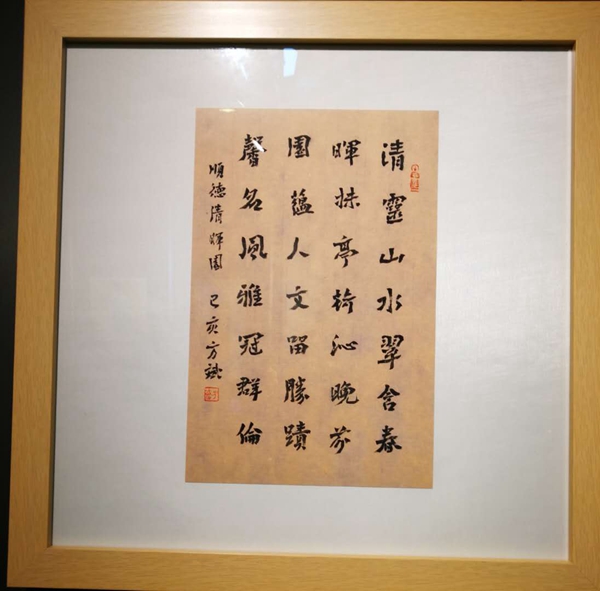 清靈山水翠含春
暉抹亭沁晚芬
園蘊人文留勝蹟
馨名風雅冠群倫
順德清暉園 己亥方斌